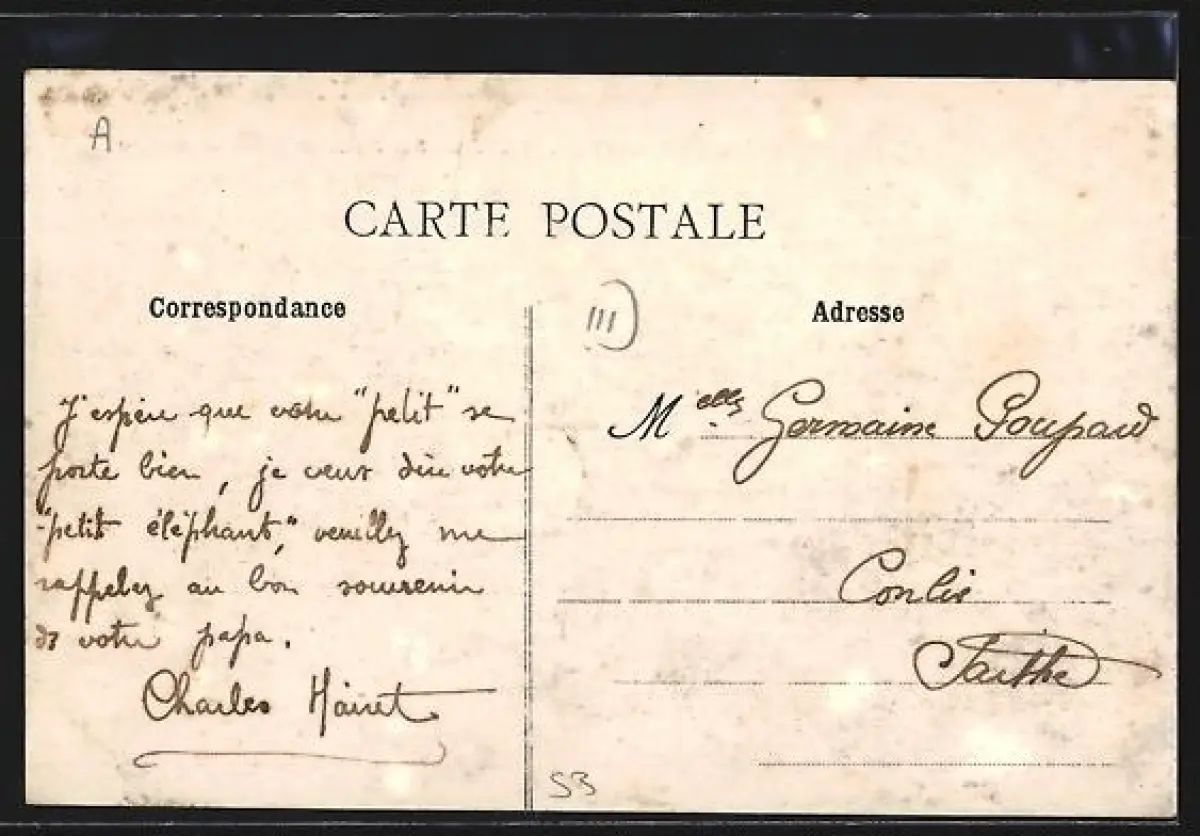 A
CARTE POSTALE
Correspondance
Adresse
III)
J'espère que votre "petit" se
porte bien, je veux dire votre
"petit éléphant," veuillez me
rappelez au bon souvenir
de votre papa.
Charles
Melle Germaine Poupard
Conlie
Sarthe
53